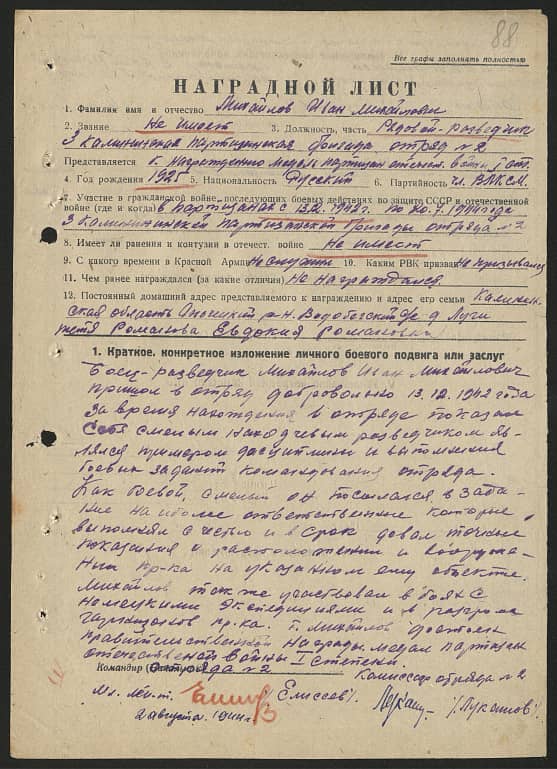 88
Все графы заполнять полностью
НАГРАДНОЙ ЛИСТ
1. Фамилия имя и отчество Михайлов Иван Михайлович
2. Звание Не имеет 3. Должность, часть Рядовой-разведчик
3 Калининская партизанская бригада отряд №2
Представляется к награждению медаль партизан отечест. войны I ст.
4. Год рождения 1925 5. Национальность Русский 6. Партийность чл. ВЛКСМ.
7. Участие в гражданской войне, последующих боевых действиях по защите СССР и отечественной
войне (где и когда) в партизанах с 13.12.1942 г. по 20.7.1944 года
3 Калининской партизанской бригады отряда №2
8. Имеет ли ранения и контузии в отечест. войне Не имеет
9. С какого времени в Красной Армии Не служил 10. Каким РВК призван Не призывался
11. Чем ранее награждался (за какие отличия) Не награждался.
12. Постоянный домашний адрес представляемого к награждению и адрес его семьи Калинин-
ская область р-н. д. Лучи
тетя Романова Евдокия Романовна
1. Краткое, конкретное изложение личного боевого подвига или заслуг
Боец-разведчик Михайлов Иван Михайлович
пришол в отряд добровольно 13.12.1942 года
За время нахождения в отряде показал
себя смелым находчевым разведчиком яв-
лялся примером дисциплины и выполнения
боевых заданий командования отряда.
Как боевой, смелый он посылался в зада-
ние наиболее ответственные которые
выполнял с честью и в срок давал точные
показания о расположении и вооруже-
нии пр-ка на указанном ему объекте.
Михайлов также участвовал в боях с
немецкими экспедициями и в разгроме
гарнизонов пр-ка. т. Михайлов достоин
правительственной награды медал партизан
отечественной войны I степени.
Командир отряда №2 Комиссар отряда №2
Мл. лей-т. /Елисеев/. /Лукашов/.
2 августа 1944 г.